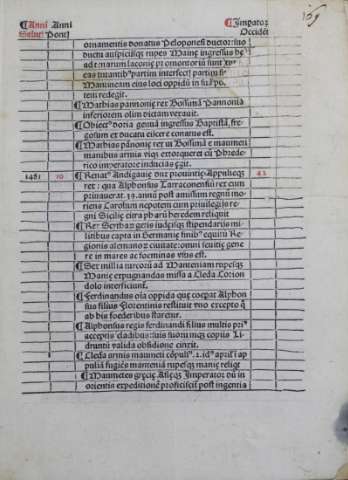 ¶Anni Anni ¶Imperator
Salutis Ponti Occidet 169
ornamentis donatus Peloponesi ductor: suo
ductu auspiciisque rupes Mayne ingressus
ad tenarum laconie promontorium sunt
eas tutantibus partim interfecti partim
Maumetam eius loci oppidum in suam
tem redegit.
¶Mathias pannonie rex Boissina Pannonia
inferiorem olim dictam vexavit.
¶Obiectus doria genua ingressus Baptista fre
gosum et ducatu eiicere conatus est.
¶Mathias panonie rex in Boissina e maumeti
manibus armis vique extorquere cum Phrede
rico imperatore inducias egit.
1481 10 ¶Renatus Andigavie dux provintie Appulieque 42
rex: qui Alphonsus Tarraconensium rex cum
privaverat. 39. anno post amissum regnum mo
riens Carolum nepotem cum privilegiis re
gni Sicilie citra pharum heredem reliquit
¶Rex Serthaz getis iudeisque stipendiariis mi
litibus capta in Germanie finibus equitum Re
gionis alemanorum civitate: omni fevitie gene
re in mares ac foeminas usus est.
¶Sex millia turcorum ad Manteniam rupesque
Manie expugnandas missa a Cleda Corion
dolo interficiunt.
¶Ferdinandus omnia oppida que ceperat Alphon
sus filius Florentinis restituit uno excepto quod
ab his foederibus staretur.
¶Alphonsus regis ferdinandi filius multis pri
acceptis cladibus: suis suorumque copiis Li
druntum valida obsidione cinxit.
¶Cleda armis maumeti compulsus. 2. idus aprilis in ap
pulia fugiens manteniam rupesque manie reliquit
¶Maumetes grecie Asieque Imperator dum in
orientis expeditione proficiscitur post ingentia